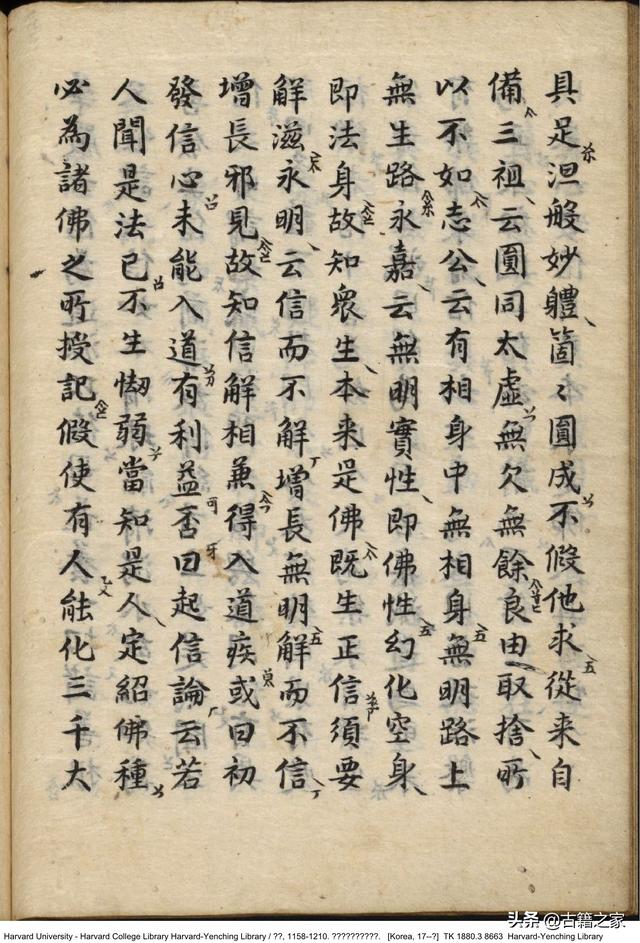 具足湼般妙軆箇〻圓成不假他求從来自
備三祖云圓同太虛無欠無餘良由取捨所
以不如志公云有相身中無相身無明路上
無生路永嘉云無明實性即佛性幻化空身
即法身故知衆生本来是佛既生正信須要
解滋永明云信而不解增長無明解而不信
增長邪見故知信解相兼得入道疾或曰初
發信心未能入道有利益否曰起信論云若
人聞是法已不生㤼弱當知是人定紹佛種
必為諸佛之所授記假使有人能化三千大
头条 @古籍之家
Harvard University - Harvard College Library Harvard-Yenching Library / ??, 1158-1210. ??????????. [Korea, 17--?] TK 1880.3 8663 Harvard-Yenching Library